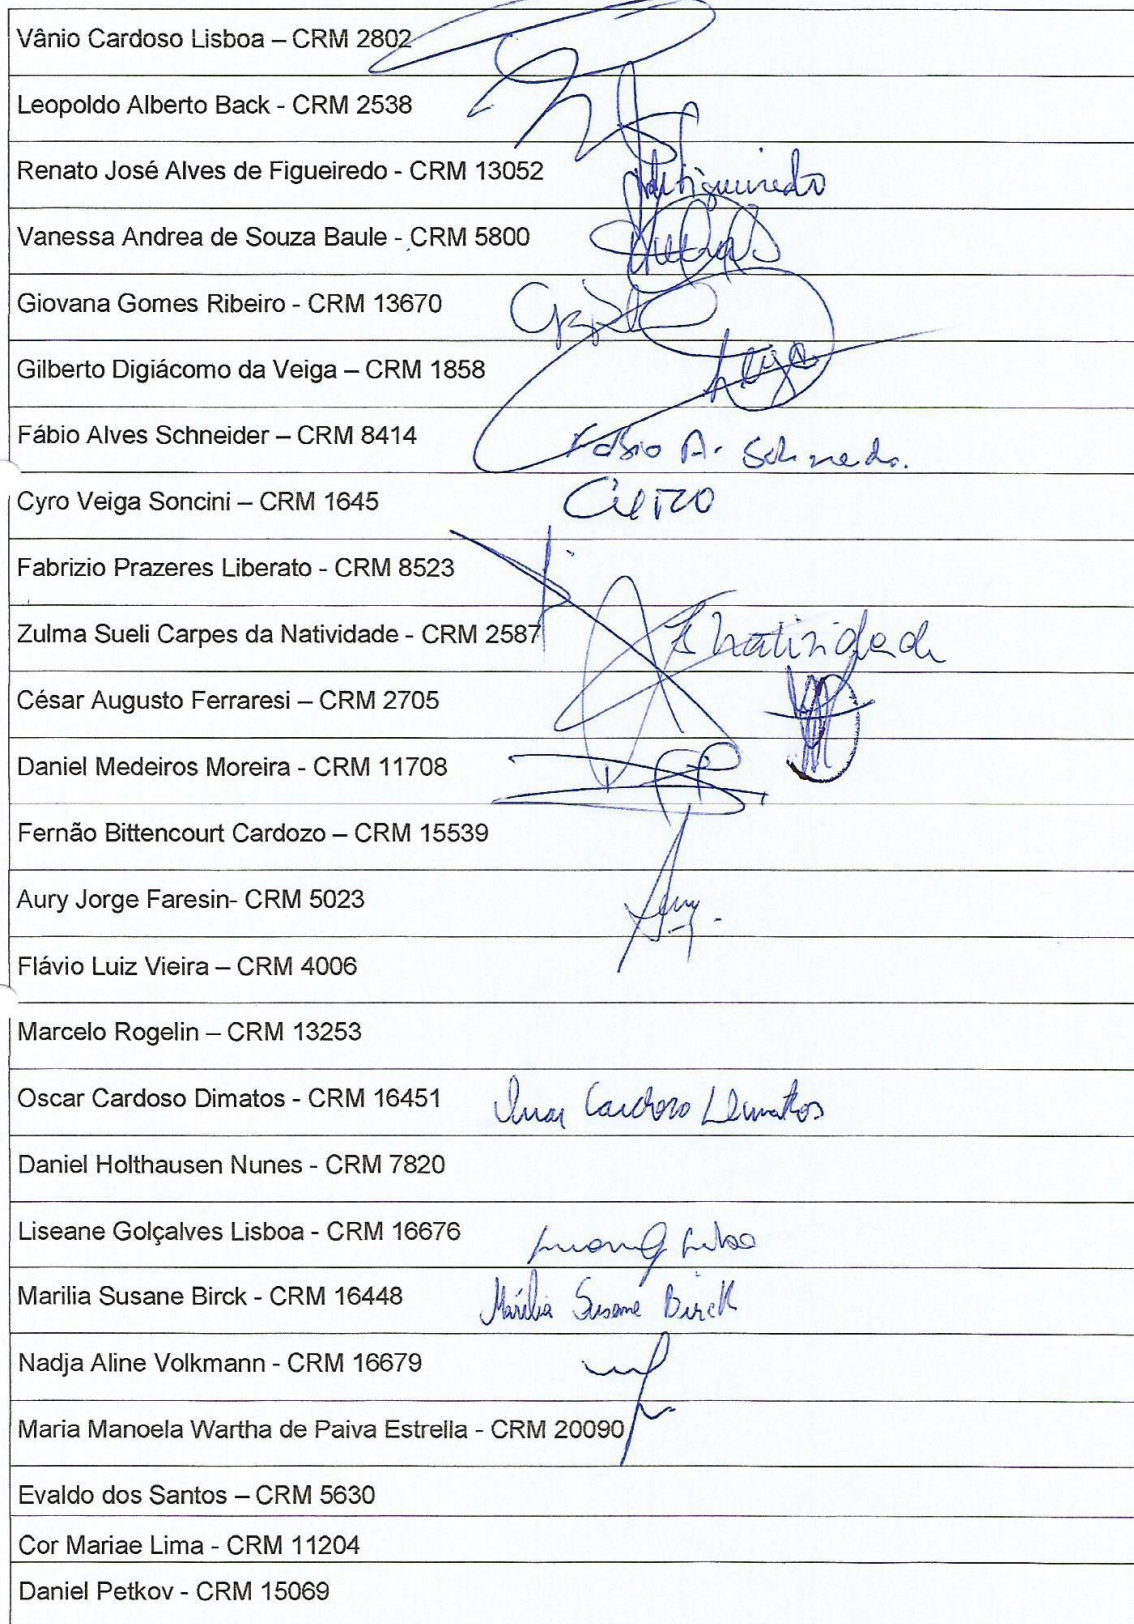 Vânio Cardoso Lisboa – CRM 2802
Leopoldo Alberto Back - CRM 2538
Renato José Alves de Figueiredo - CRM 13052
Vanessa Andrea de Souza Baule - CRM 5800
Giovana Gomes Ribeiro - CRM 13670
Gilberto Digiácomo da Veiga – CRM 1858
Fábio Alves Schneider – CRM 8414 Fábio A. Schneider.
Cyro Veiga Soncini – CRM 1645
Fabrizio Prazeres Liberato - CRM 8523
Zulma Sueli Carpes da Natividade - CRM 2587 Natividade
César Augusto Ferraresi – CRM 2705
Daniel Medeiros Moreira - CRM 11708
Fernão Bittencourt Cardozo – CRM 15539
Aury Jorge Faresin- CRM 5023 Aury
Flávio Luiz Vieira – CRM 4006
Marcelo Rogelin – CRM 13253
Oscar Cardoso Dimatos - CRM 16451 Oscar Cardoso Dimatos
Daniel Holthausen Nunes - CRM 7820
Liseane Golçalves Lisboa - CRM 16676
Marilia Susane Birck - CRM 16448 Marília Susane Birck
Nadja Aline Volkmann - CRM 16679
Maria Manoela Wartha de Paiva Estrella - CRM 20090
Evaldo dos Santos – CRM 5630
Cor Mariae Lima - CRM 11204
Daniel Petkov - CRM 15069